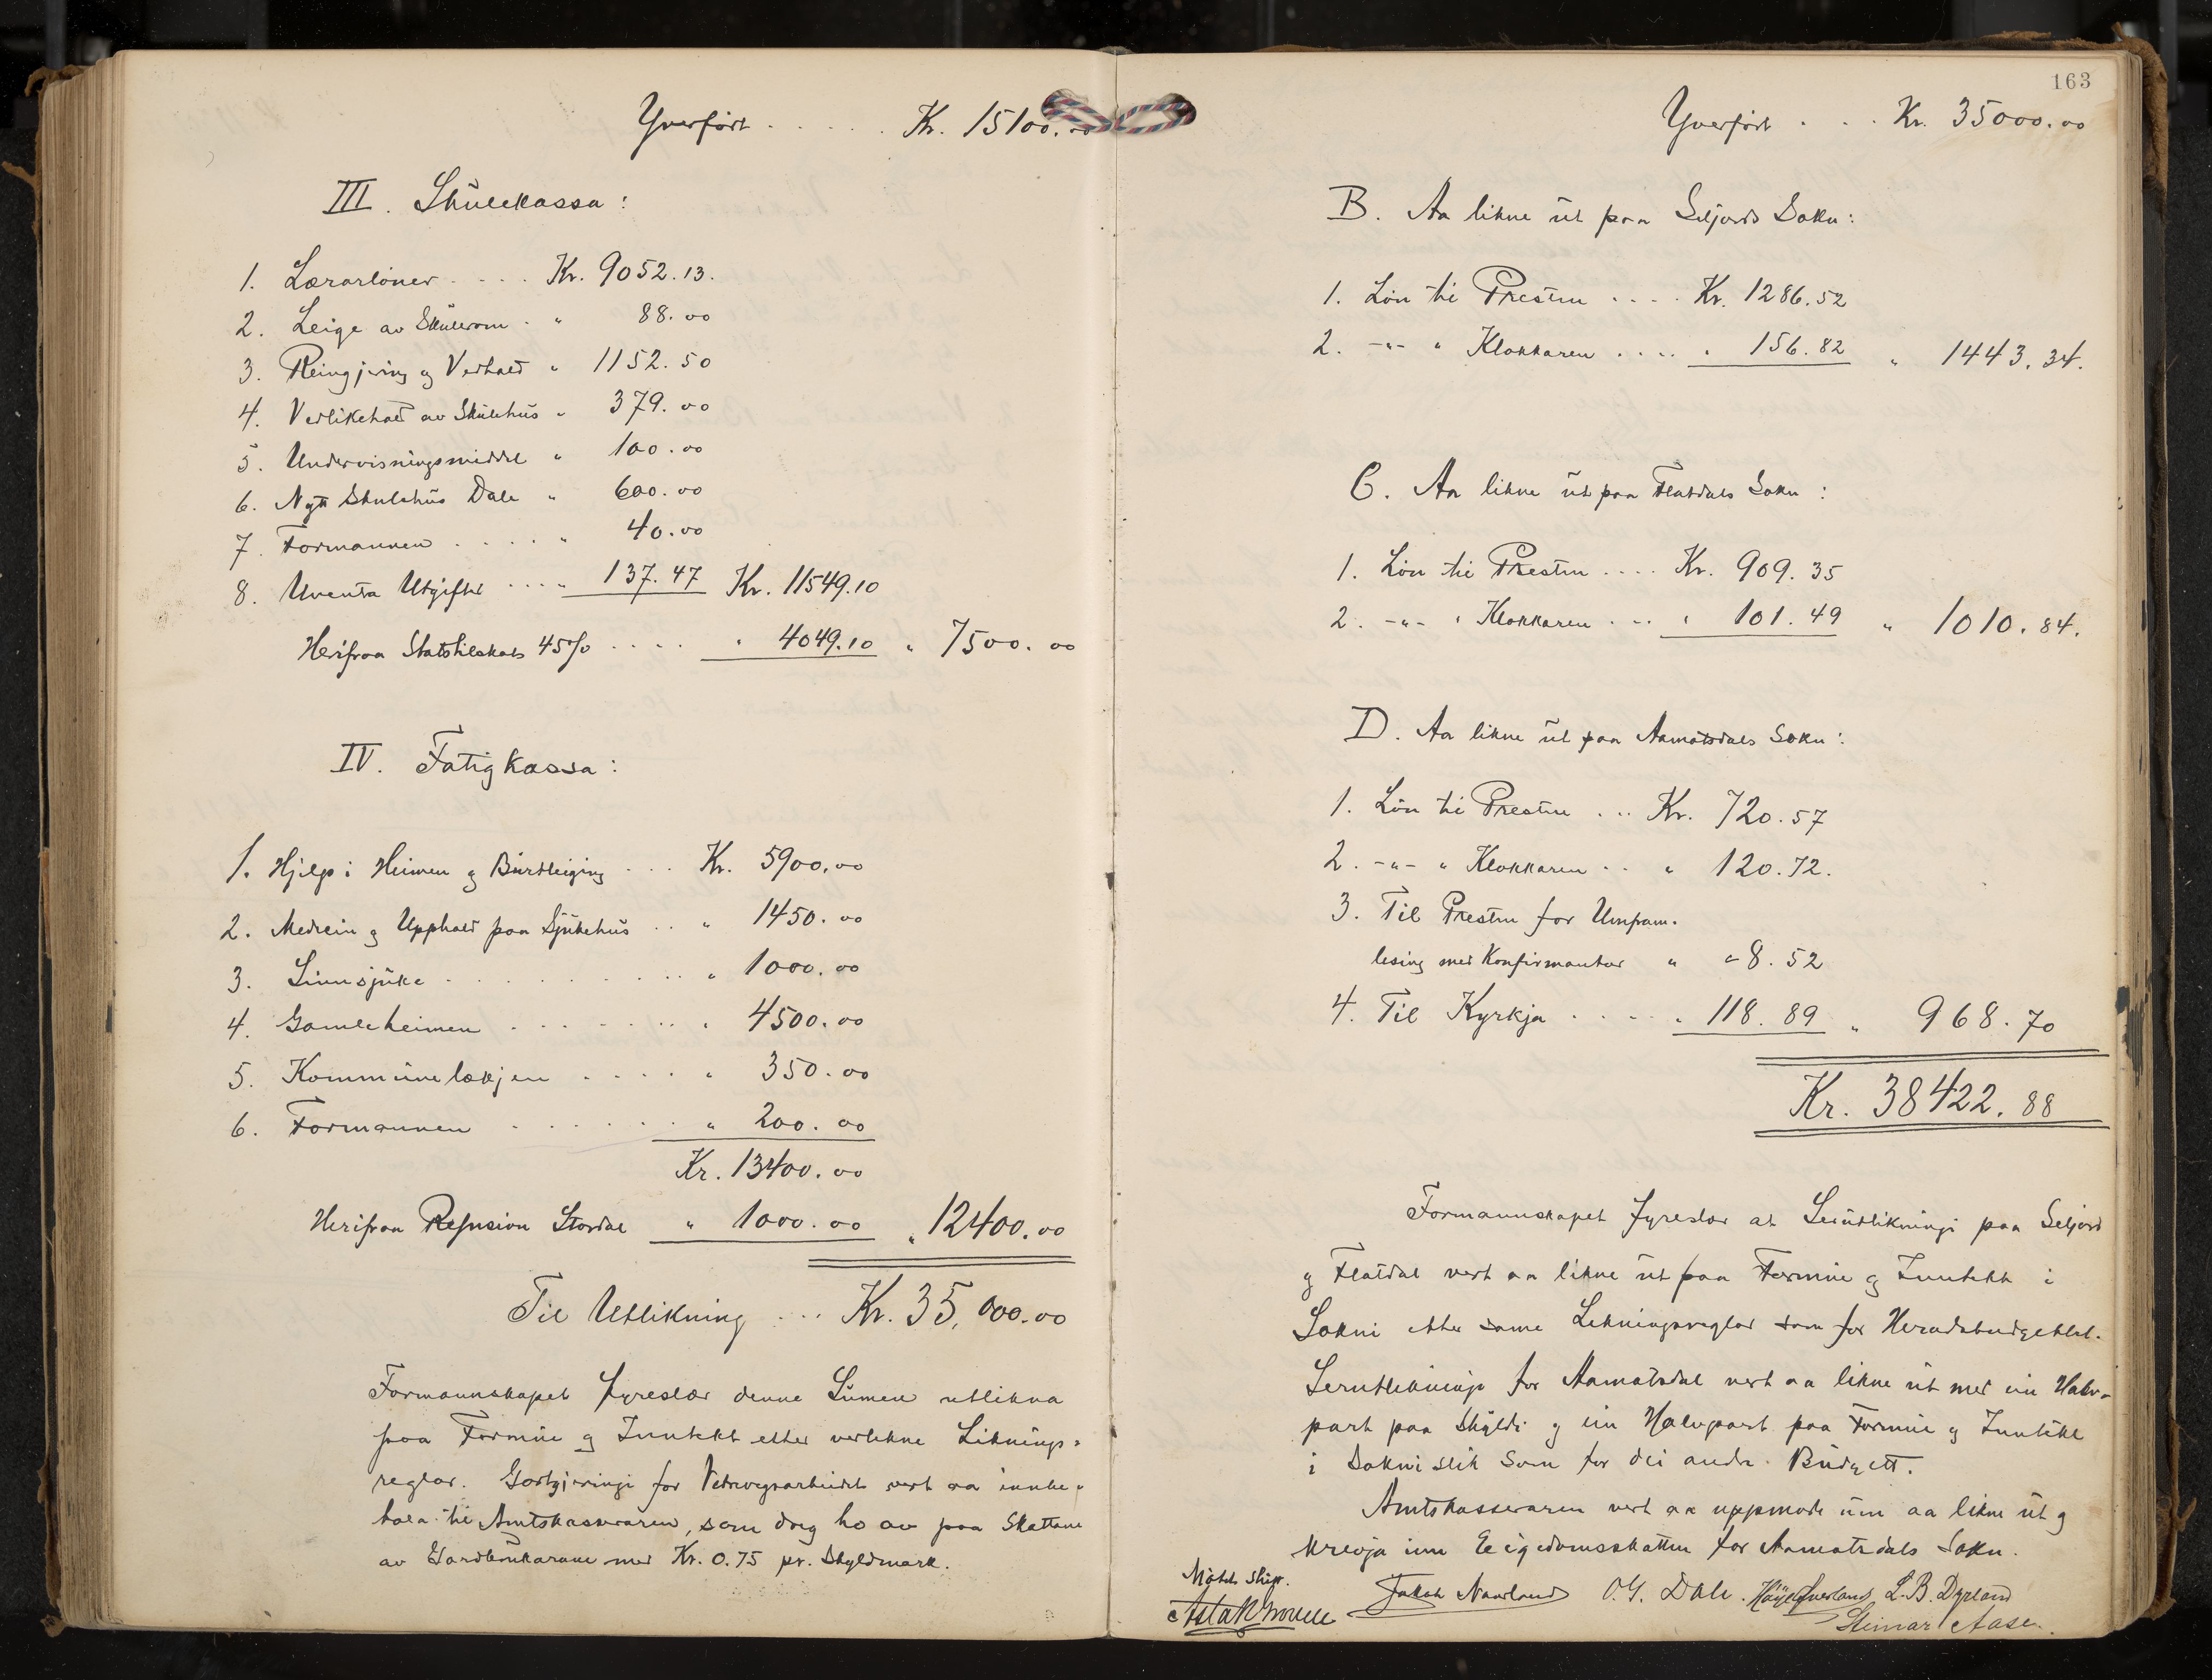 Yverført . . . . . . Kr. 15100.00
III. Skulekassa:
1. Lærarløner . . . . Kr. 9052.13.
2. Leige av Skulerom . " 88.00
3. Reingjering og Vedhald " 1152.50
4. Vedlikehald av Skulehus " 379.00
5. Undervisningsmiddel " 100.00
6. Nytt Skulehus Dale " 600.00
7. Formannen . . . . . " 40.00
8. Uventa Utgifter . . . . " 137.47 Kr. 11549.10
Herifraa Statstilskot 45% . . . . " 4049.10 " 7500.00
IV. Fatigkassa:
1. Hjelp i Heimen og Burtleiging . . . Kr. 5900.00
2. Medicin og Upphald paa Sjukehus . . " 1450.00
3. Sinnsjuke . . . . . . . . . " 1000.00
4. Gamleheimen . . . . . . . . " 4500.00
5. Kommunelækjen . . . . . " 350.00
6. Formannen . . . . . . " 200.00
Kr. 13400.00
Herifraa Refusion Stordal " 1000.00 " 12400.00
Til Utlikning . . . Kr. 35,000.00
Formannskapet fyreslær denne Sumen utlikna
paa Formue og Inntekt etter verlikne Liknings-
reglar. Godtgjeringi for Vedvegsarbeidet vert aa innbe-
tala til Amtskasseraren, som dreg ho av paa Skattane
av Gardbrukarane med Kr. 0.75 pr. Skyldmark.
163
Yverført . . . Kr. 35000.00
B. Aa likne ut paa Seljords Sokn:
1. Løn til Presten . . . . Kr. 1286.52
2. -"- " Klokkaren . . . . " 156.82 " 1443.34.
C. Aa likne ut paa Flatdals Sokn:
1. Løn til Presten . . . . Kr. 909.35
2. -"- " Klokkaren . . . " 101.49 " 1010.84.
D. Aa likne ut paa Aamotsdals Sokn:
1. Løn til Presten . . . Kr. 720.57
2. -"- " Klokkaren . . " 120.72.
3. Til Presten for Umfram-
lesing med Konfirmantar " 8.52
4. Til Kyrkja . . . . . " 118.89 " 968.70
Kr. 38422.88
Formannskapet fyreslær at Serutlikningi paa Seljord
og Flatdal vert aa likne ut paa Formue og Inntekt i
Sokni etter same Likningsreglar som for Heradsbudgettet.
Serutlikningi for Aamotsdal vert aa likne ut med ein Halv-
part paa Skyldi og ein Halvpart paa Formue og Inntekt
i Sokni slik som for dei andre Budgett.
Amtskasseraren vert aa uppmode um aa likne ut og
krevja inn Eigedomsskatten for Aamotsdals Sokn.
Møtet slutt.
Jakob Naurland O. G. Dale. L. B. Dyrland
Steinar Aase.